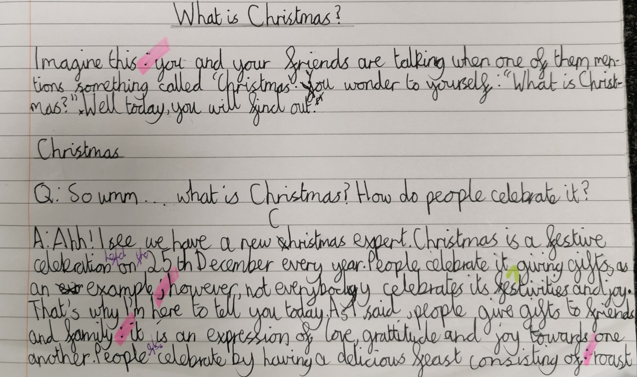 What is Christmas?
Imagine this - you and your friends are talking when one of them men-
tions something called 'Christmas'. You wonder to yourself: "What is Christ-
mas?". Well today, you will find out.
Christmas
Q: So umm.... what is Christmas? How do people celebrate it?
C
A: Ahh! I see we have a new christmas expert. Christmas is a festive
celebration on 25th December every year. People celebrate it giving gifts, as
an example, however, not everybody celebrates its festivities and joy.
That's why I'm here to tell you today. As I said, people give gifts to friends
and family; it is an expression of love, grattitude and joy towards one
another. People celebrate by having a delicious feast consisting of: roast